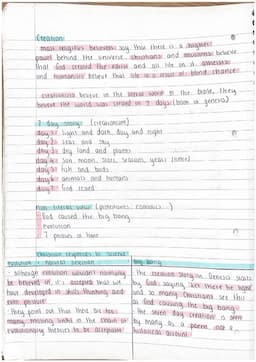 Creation:
most religious believers say that there is a higher
power behind the universe. christians and muslims believe
that God created the earth and all life on it. atheists
and humanists believe that life is a result of blind chance
creationists believe in the literal word of the bible, they
believe the world was created in 7 days (book of genesis)
7 day story: (creationism)
day 1: light and dark, day and night
day 2: seas and sky
day 3: dry land and plants
day 4: sun, moon, stars, seasons, years (time)
day 5: fish and birds
day 6: animals and humans
day 7: God rested
non-literal view (protestants, catholics...)
God caused the big bang
evolution
7 phases of time
christian responses to science:
evolution + natural selection
big bang
- although evolution wouldn't normally
be believed in, it's accepted that we
have developed in skills, thinking and
even posture
- they point out that there are too
many missing links in the chain of
evolutionary theories to be acceptable
- The creation story in Genesis starts
by God saying 'let there be light'
and so many christians see this
as God causing the big bang.
- the seven day creation is seen
by many as a poem not a
historical account